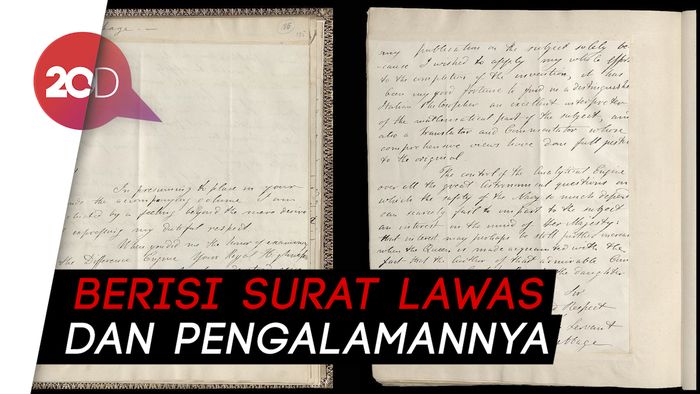 20D
bage. —
In presuming to place in your
the accompanying volume I am
by a feeling beyond the mere desire
expressing my dutiful respect.
When you did me the honor of examining
the Difference Engine Your Royal Highness
my publication on the subject solely be
-cause I wished to apply my whole efforts
to the completion of the invention, it has
been my good fortune to find in a distinguished
Italian Philosopher an excellent interpreter
of the mathematical part of the subject, and
also a Translator and Commentator whose
comprehensive views have done full justice
to the original.
The control of the Analytical Engine
over all the great Astronomical questions on
which the safety of the Navy so much depends
can scarcely fail to impart to the subject
an interest in the mind of Her Majesty:
that interest may perhaps be still further increased
when the Queen is made acquainted with the
fact that the author of that admirable Com
the daughter
Sir
Respect
Servant
bbage
BERISI SURAT LAWAS
DAN PENGALAMANNYA